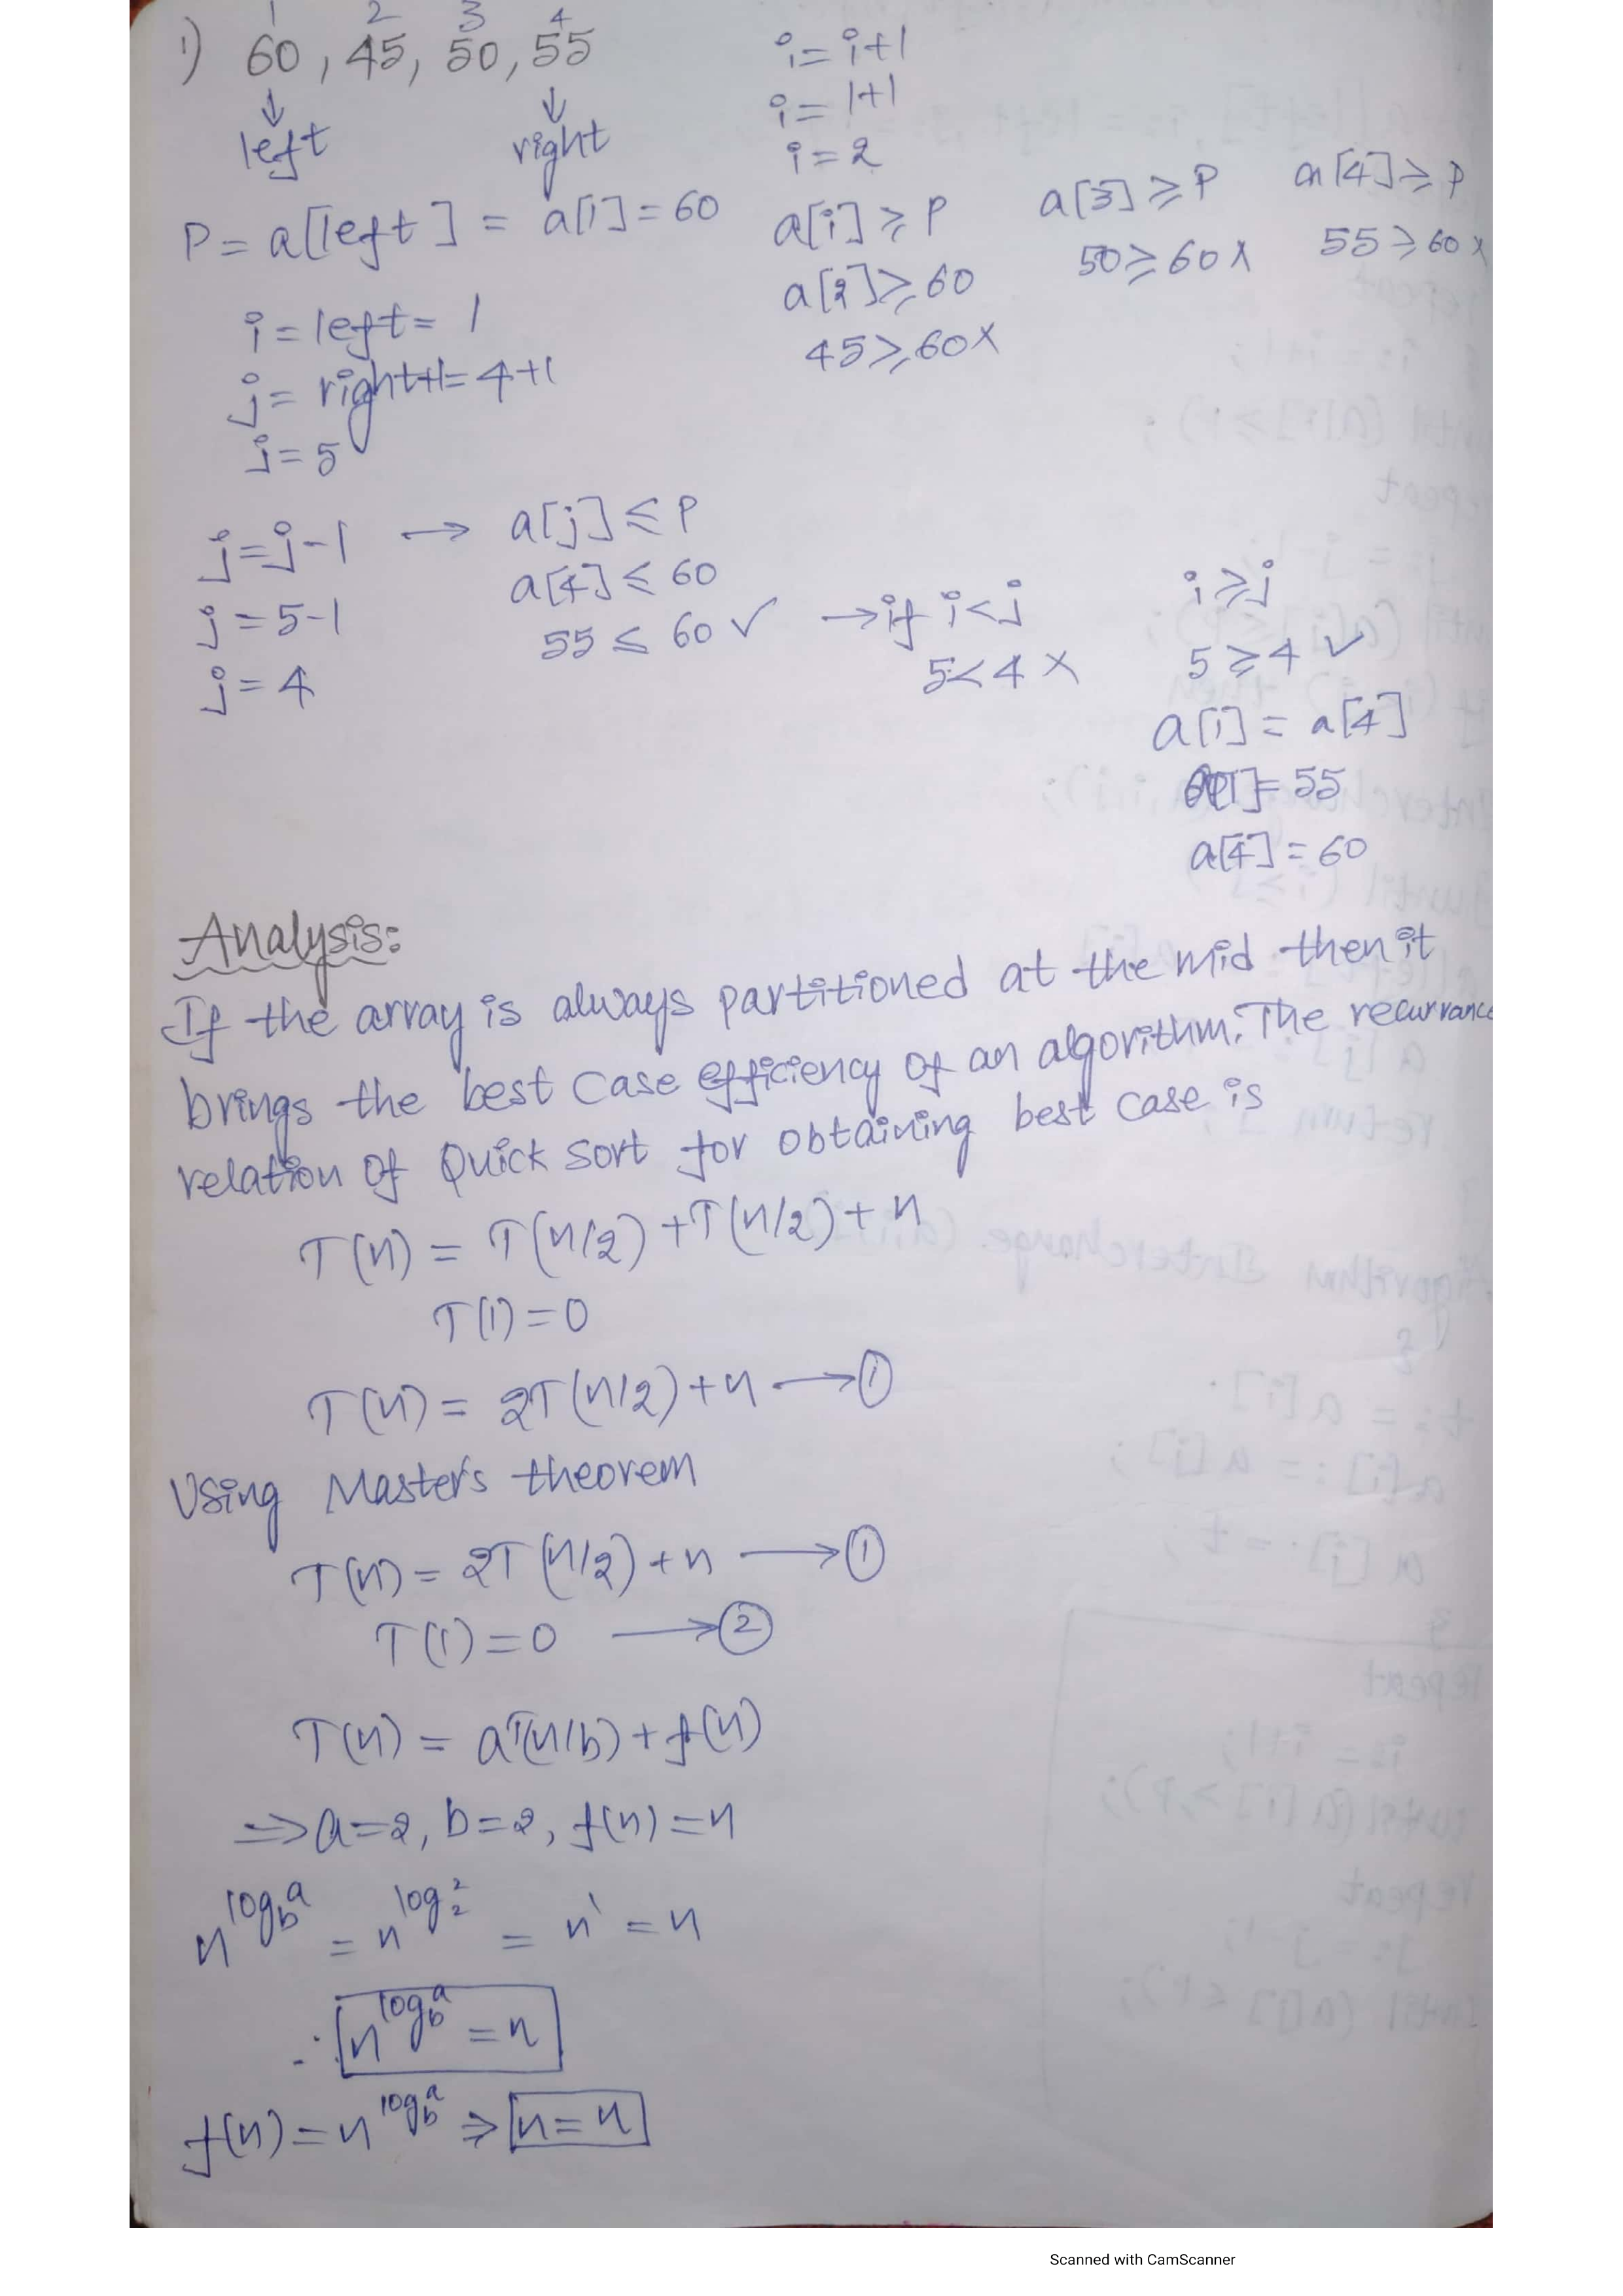 1 2 3 4
1) 60, 45, 50, 55
↓ ↓
left right
P = a[left] = a[1] = 60
i = left = 1
j = right+1 = 4+1
j = 5
i = i+1
i = 1+1
i = 2
a[i] ≥ P
a[2] ≥ 60
45 ≥ 60 X
a[3] ≥ P
50 ≥ 60 X
a[4] ≥ P
55 ≥ 60 X
j = j-1 → a[j] ≤ P
j = 5-1
j = 4
a[4] ≤ 60
55 ≤ 60 ✓ → if i < j
5 < 4 X
i ≥ j
5 ≥ 4 ✓
a[1] = a[4]
a[1] = 55
a[4] = 60
Analysis:
If the array is always partitioned at the mid then it
brings the best case efficiency of an algorithm. The recurrance
relation of Quick sort for obtaining best case is
T(n) = T(n/2) + T(n/2) + n
T(1) = 0
T(n) = 2T(n/2) + n → ①
Using Master's theorem
T(n) = 2T(n/2) + n → ①
T(1) = 0 → ②
T(n) = aT(n/b) + f(n)
⇒ a = 2, b = 2, f(n) = n
n^log_b^a = n^log_2^2 = n^1 = n
∴ n^log_b^a = n
f(n) = n^log_b^a ⇒ n = n
Scanned with CamScanner